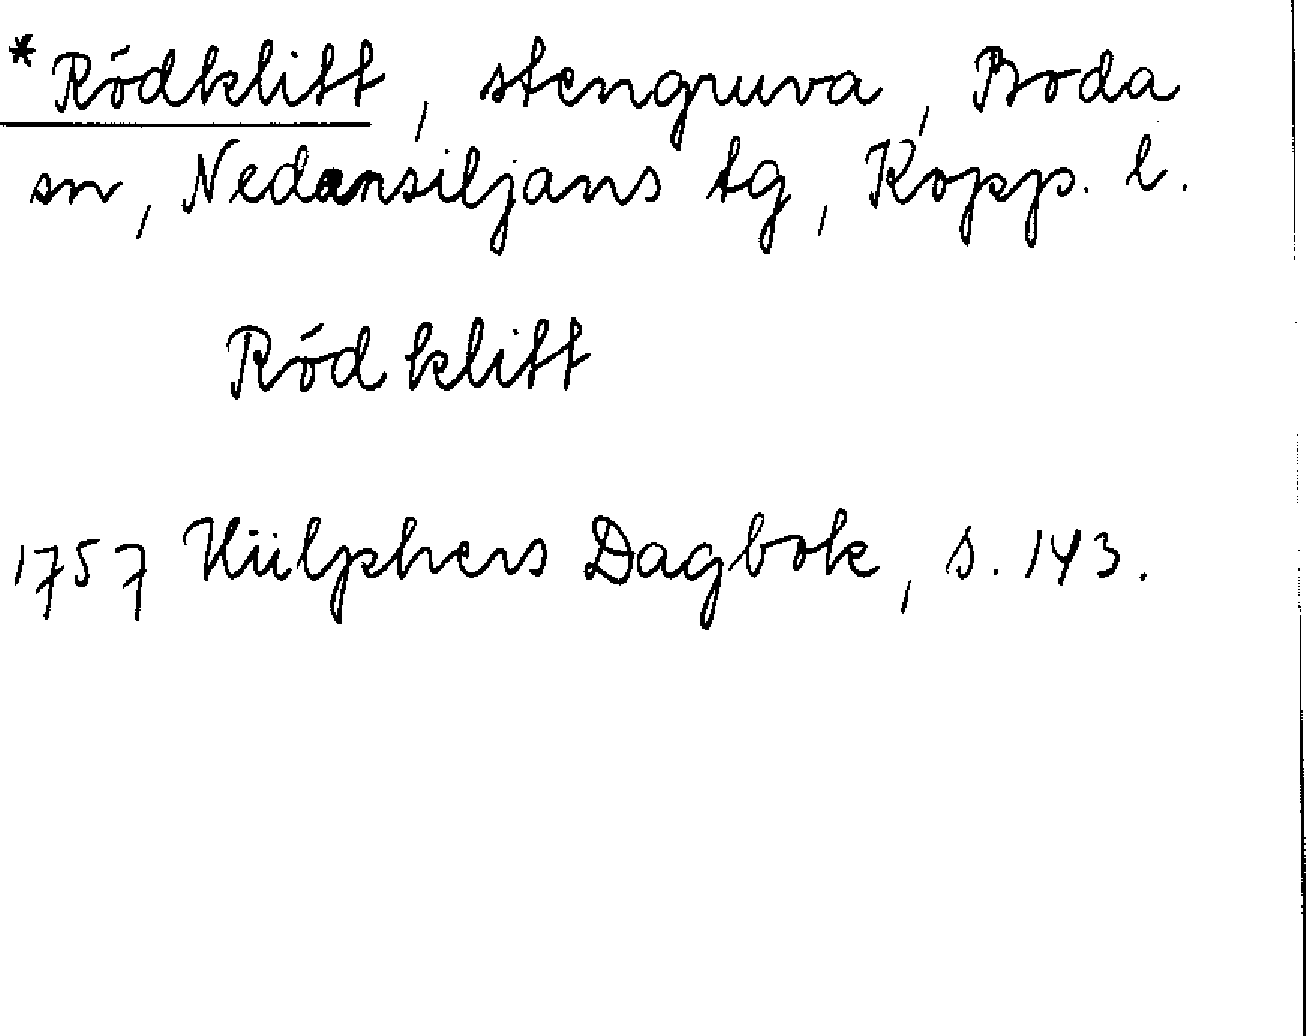 *Rödklitt, stengruva, Boda
sn, Nedansiljans tg, Kopp. l.
Röd klitt
1757 Hülphers Dagbok, s. 143.